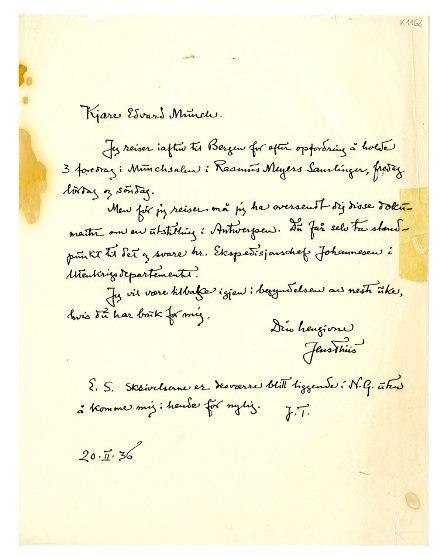 K1168
Kjære Edvard Munch.
Jeg reiser iaften til Bergen for efter opfordring å holde
3 foredrag i Munchsalen i Rasmus Meyers Samlinger, fredag
lördag og söndag.
Men för jeg reiser må jeg ha oversendt dig disse doku-
menter om en utstilling i Antwerpen. Du får selv ta stand-
punkt til det og svare hr. Ekspedisjonschef Johannesen i
Utenriksdepartementet.
Jeg vil være tilbake igjen i begyndelsen av neste uke,
hvis du har bruk for mig.
Din hengivne
Jens Thiis
E. S. Skrivelserne er desværre blitt liggende i N.G. uten
å komme mig i hende för nylig. J.T.
20.II.36